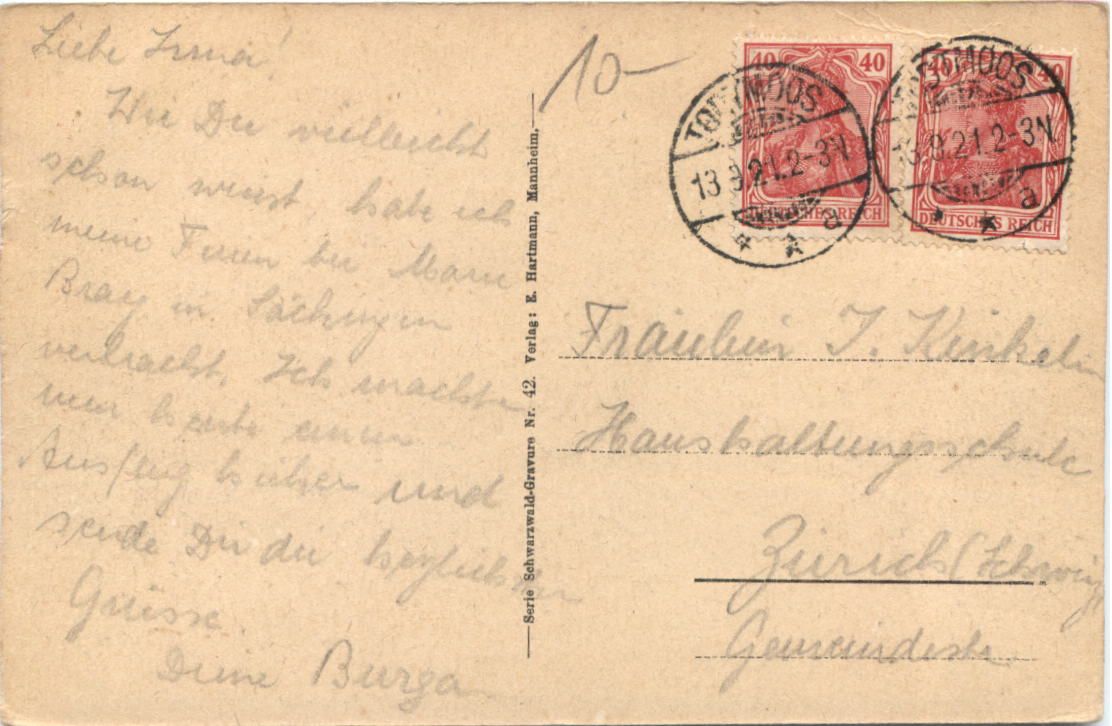 Liebe Irma!
Wie Du vielleicht
schon weist, habe ich
meine Ferien bei Marie
in Säckingen
verbracht. Ich machte
nun heute einen
Ausflug hieher und
sende Dir die herzlichsten
Grüsse.
Deine Burga
Serie Schwarzwald-Gravure Nr. 42. Verlag: E. Hartmann, Mannheim.
10-
40 40
DEUTSCHES REICH
TODTMOOS
13.9.21.2-3N
a
40 40
DEUTSCHES REICH
TODTMOOS
13.9.21.2-3N
a
Fräulein I. Kinkelin
Haushaltungsschule
Zürich (Schweiz)